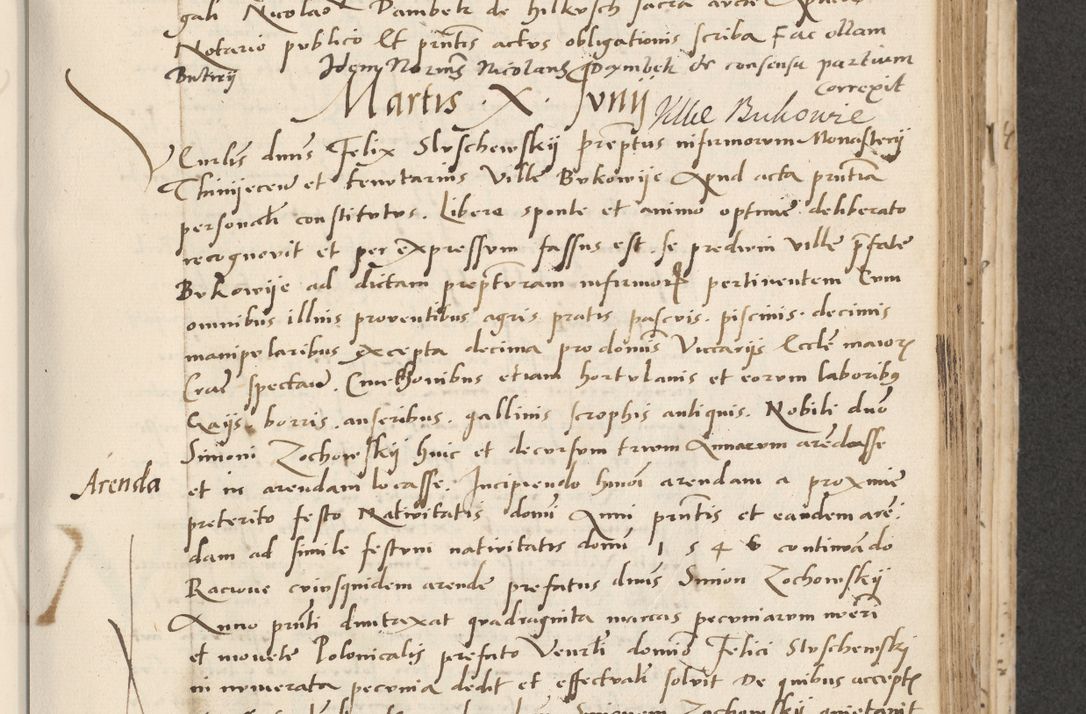 gali Nicolao Dambek de hilkusch sacra aucte
Notario publico Et pñtis actus obligationis scriba Fac ollam
Butrij Idem Nicolaus Dambek de consensu partium
correxit
Martis . X . Junij Ville Bukowie
Vñrlis dnus Felix Sluschewskij prepĩtus infirmorum Monasterij
Thinijecen et tenutarius Ville Bukowije Apud acta pñtia
personalr constitutus . Libere sponte et animo optime deliberato
recognovit et per expressum fassus est . se predium ville pfate
Bukowije ad dictam prepturam infirmor pertinentem Cum
omnibus illius proventibus agris pratis pascuis . piscinis . decimis
manipularibus excepta decima pro domis Viccarijs Eccle maior
Crac spectan . Cmethonibus etiam hortulanis et eorum laboribus
Gaijs . borris . anseribus . gallinis scrophis antiquis . Nobili duo
Simoni Zochowskij huic et decursum trium Annarum arendasse
et in arendam locasse . Incipiendo hmoi arendam a proxime
Arenda
preterito festo Nativitatis domi Anni pñtis et eandem aren
dam ad simile festum nativitatis domi 1 5 4 6 continuando
Racione cuiusquidem arende prefatus dnus Simon Zochowskij
Anno pñti dumtaxat quadraginta marcas pecuniarum nũeri
et monete Polonicalis prefato Venrli domino Felici Sluschewski
in numerata pecunia dedit et effectualr solvit De quibus acceptis
Zochowskij quietavit